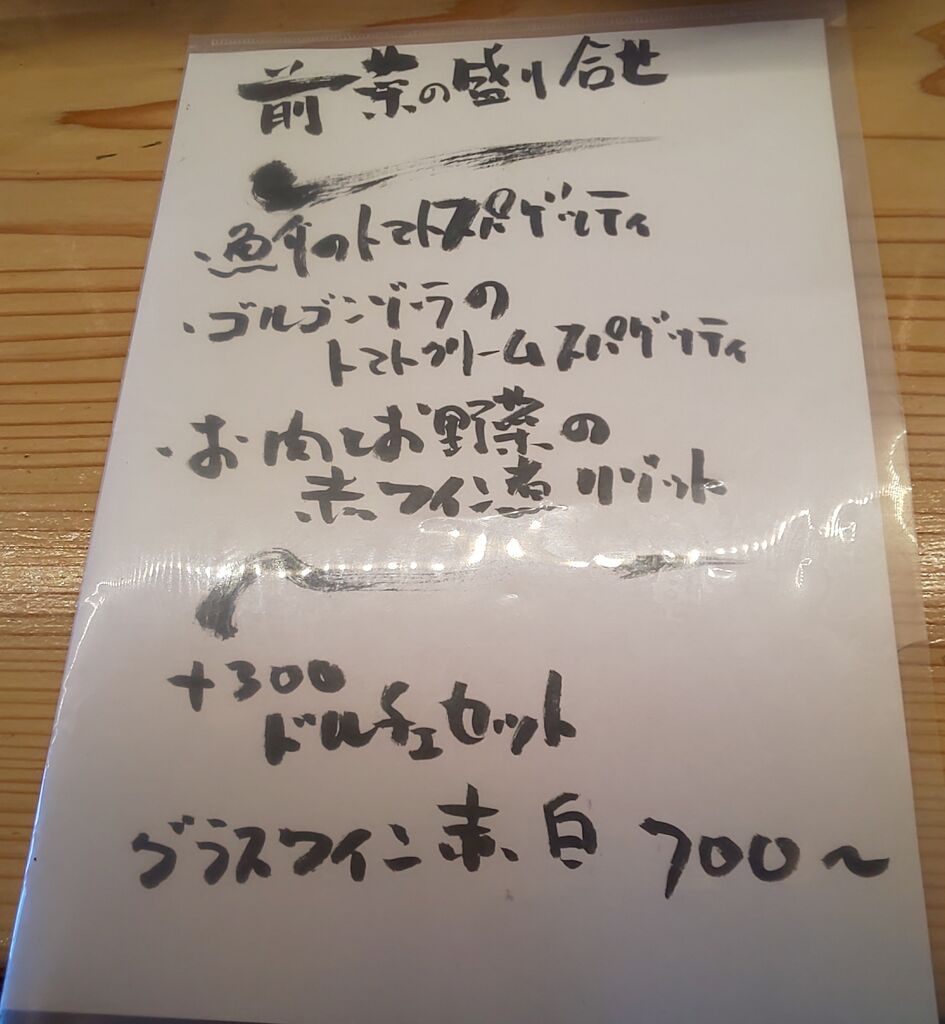 前菜の盛り合せ
・魚介のトマトスパゲッティ
・ゴルゴンゾーラの
トマトクリームスパゲッティ
・お肉とお野菜の
赤ワイン煮リゾット
+300
ドルチェセット
グラスワイン赤、白 700～